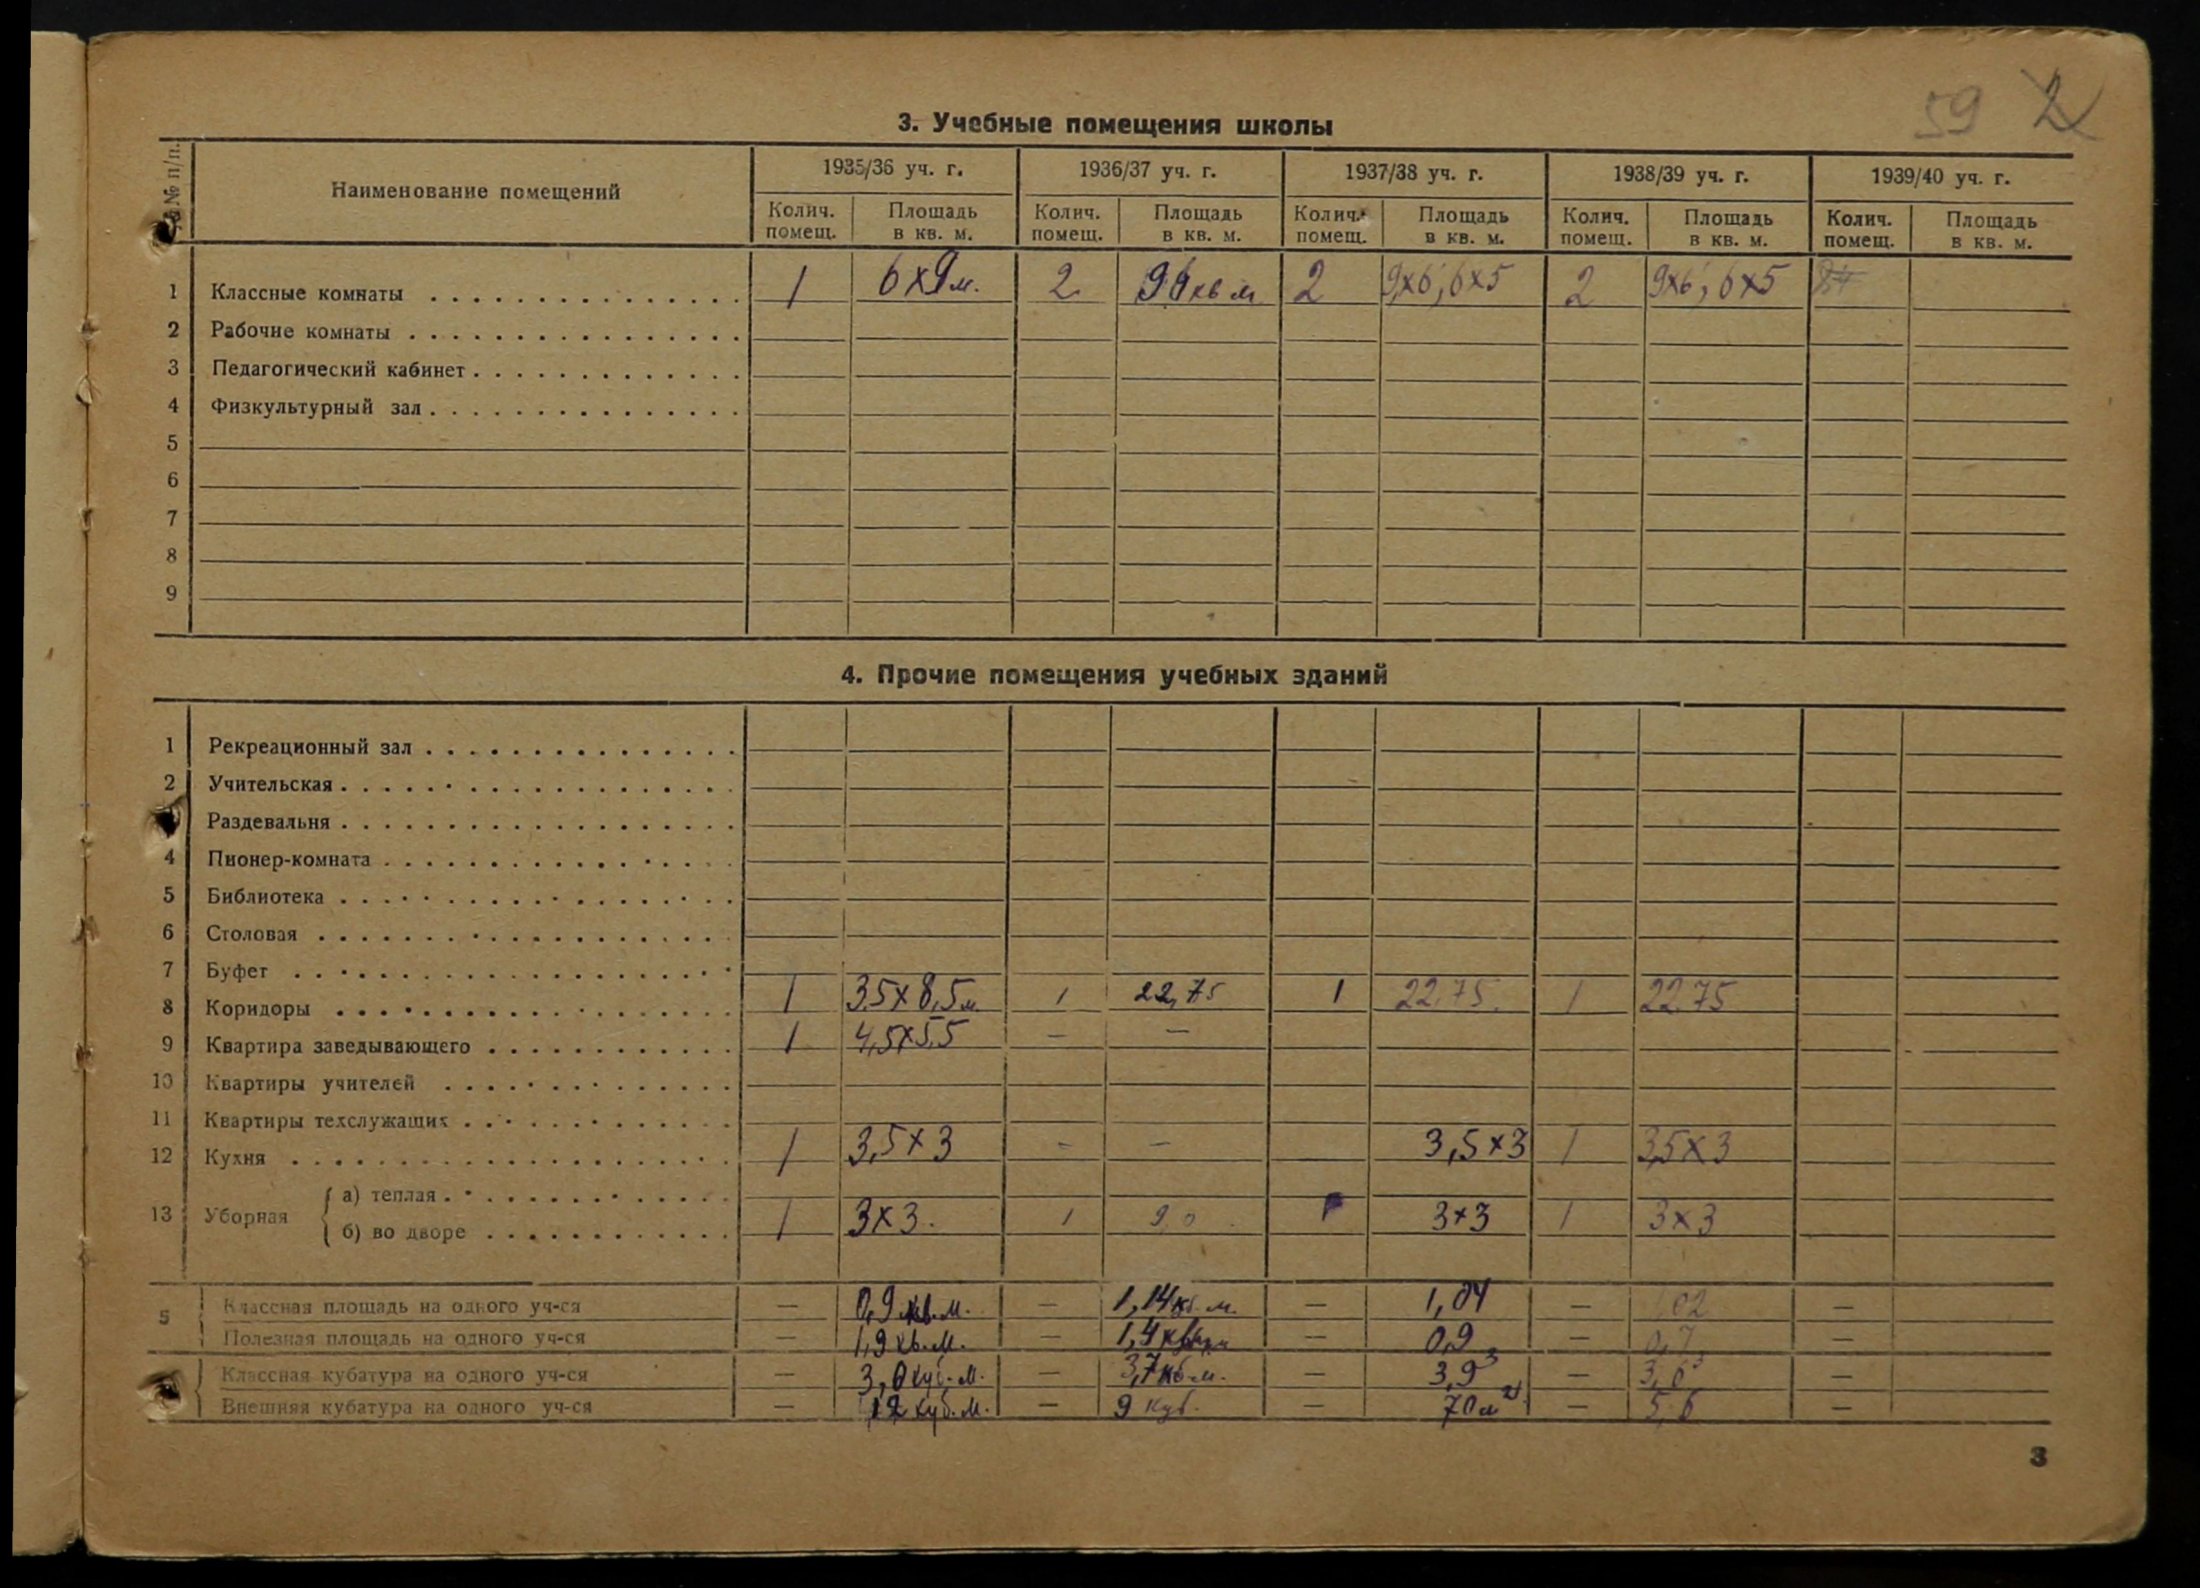 59 2
3. Учебные помещения школы
№№ п/п. Наименование помещений 1935/36 уч. г. 1936/37 уч. г. 1937/38 уч. г. 1938/39 уч. г. 1939/40 уч. г.
Колич. помещ. Площадь в кв. м. Колич. помещ. Площадь в кв. м. Колич. помещ. Площадь в кв. м. Колич. помещ. Площадь в кв. м. Колич. помещ. Площадь в кв. м.
1 Классные комнаты 1 6х9м. 2 кв м 2 9х6; 6х5 2 9х6; 6х5
2 Рабочие комнаты
3 Педагогический кабинет
4 Физкультурный зал
5
6
7
8
9
4. Прочие помещения учебных зданий
1 Рекреационный зал
2 Учительская
Раздевальня
4 Пионер-комната
5 Библиотека
6 Столовая
7 Буфет
8 Коридоры 1 3,5х8,5м 1 22,75 1 22,75. 1 22.75
9 Квартира заведывающего 1 4,5х5,5 — —
10 Квартиры учителей
11 Квартиры техслужащих
12 Кухня 1 3,5х3 - — 3,5х3 1 3,5х3
13 Уборная а) теплая
б) во дворе 1 3х3. 1 9,0 3х3 1 3х3
5 Классная площадь на одного уч-ся — 0,9 кв.м. — 1,14кв.м. — 1,04 — —
Полезная площадь на одного уч-ся — 1,9 кв.м. — 1,4 — 0,9 — 0,7 —
Классная кубатура на одного уч-ся — куб.м. — 3,7кб.м. — 3,9 — 3,6 —
Внешняя кубатура на одного уч-ся — 12 куб.м. — 9 куб. — — 5,6 —
3